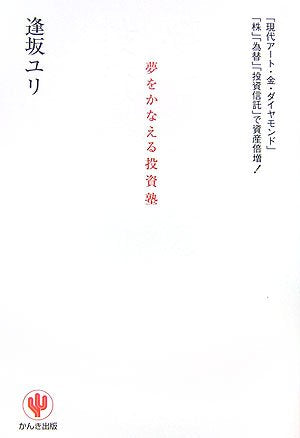 「現代アート・金・ダイヤモンド」
「株」「為替」「投資信託」で資産倍増!
夢をかなえる投資塾
逢坂ユリ
かんき出版